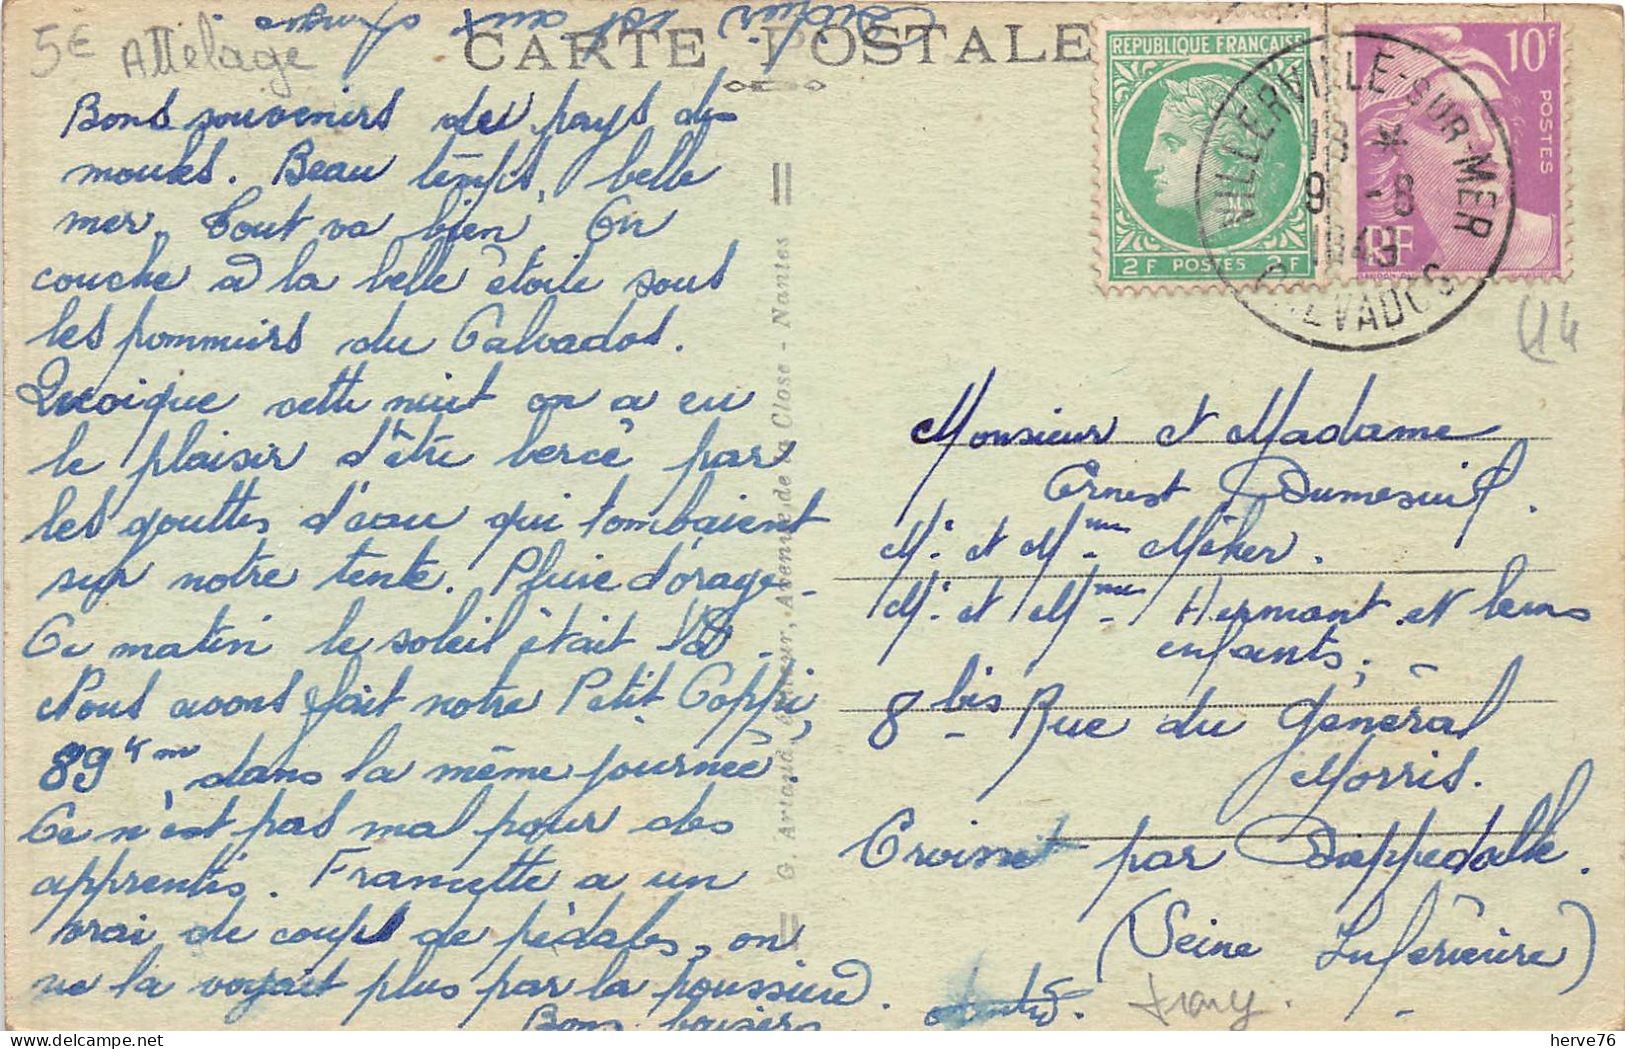 5€ Attelage
CARTE POSTALE
RÉPUBLIQUE FRANÇAISE
2F POSTES 2F
10F
POSTES
RF
VILLERVILLE-SUR-MER
CALVADOS
Bons souvenirs des pays des
moules. Beau temps, belle
mer. Tout va bien. On
couche à la belle étoile sous
les pommiers du Calvados.
Quoique cette nuit on a eu
le plaisir d'être bercé par
les gouttes d'eau qui tombaient
sur notre tente. Pluie d'orage.
Ce matin le soleil était là.
Nous avons fait notre Petit Coppi,
89 km dans la même journée.
Ce n'est pas mal pour des
apprentis. Francette a un
vrai de coups de pédales, on
ne la voyait plus par la poussière.
Bons baisers
G. Artaud, Editeur, Avenue de la Close - Nantes
Monsieur et Madame
Ernest Dumesnil.
Mr et Mme Méker.
Mr et Mme Hermant et leurs
enfants.
8 bis Rue du Général
Morris.
Croisset par Dieppedalle.
(Seine Inférieure)
delcampe.net
herve76